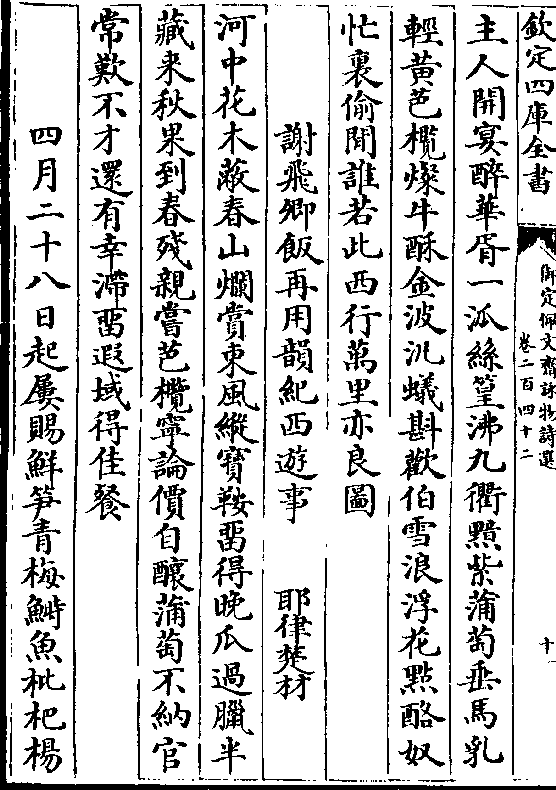 欽定四庫全書
御定佩文齋詠物詩選
卷二百四十二
十
主人開宴醉華胥一派絲篁沸九衢黦紫蒲萄垂馬乳
輕黃芭欖燦牛酥金波泛蟻斟歡伯雪浪浮花點酪奴
忙裏偷閒誰若此西行萬里亦良圖
謝飛卿飯再用韻紀西遊事 耶律楚材
河中花木蔽春山爛賞東風縱寳鞍畱得晚瓜過臘半
藏来秋果到春殘親嘗芭欖寧論價自釀蒲萄不納官
常歎不才還有幸滯畱遐域得佳餐
四月二十八日起屢賜鮮筍青梅鰣魚枇杷楊